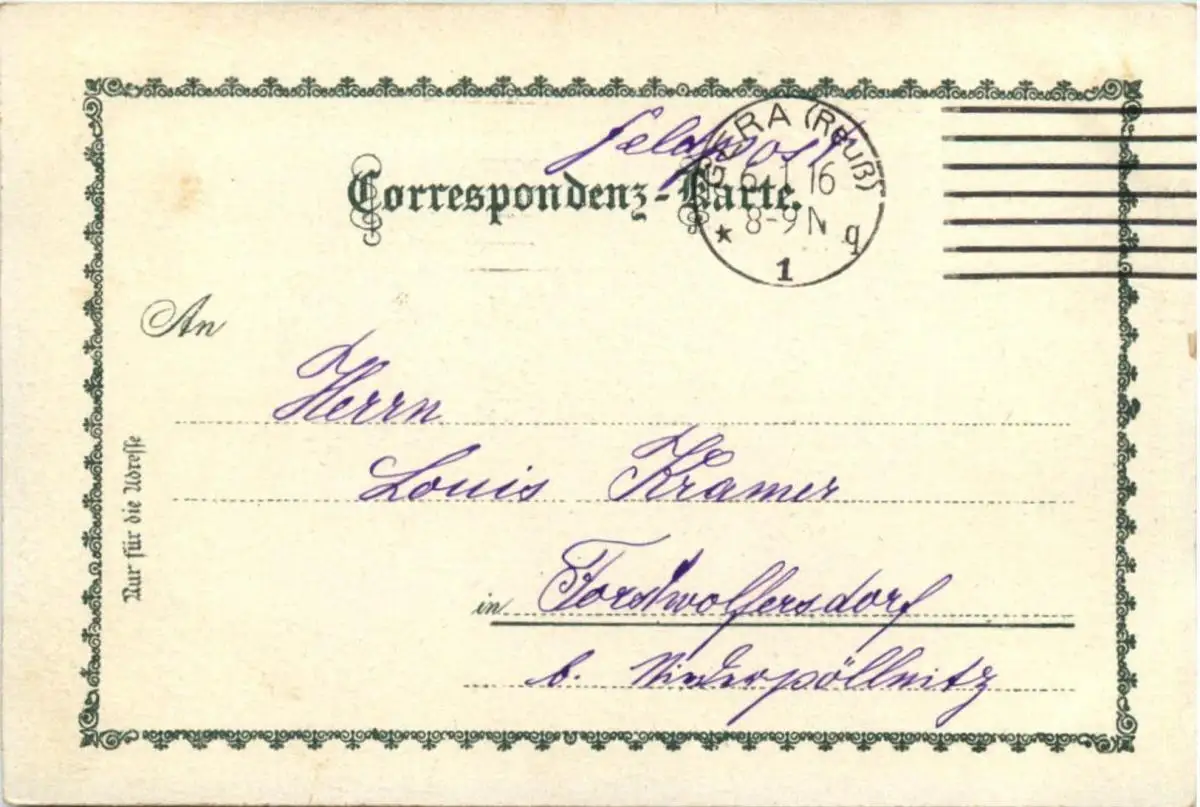 Feldpost
Correspondenz-Karte.
GERA (Reuß)
6.1.16
8-9 N
* 1 q
An
Herrn
Louis Kramer
in Forstwolfersdorf
b. Niederpöllnitz
Nur für die Adresse